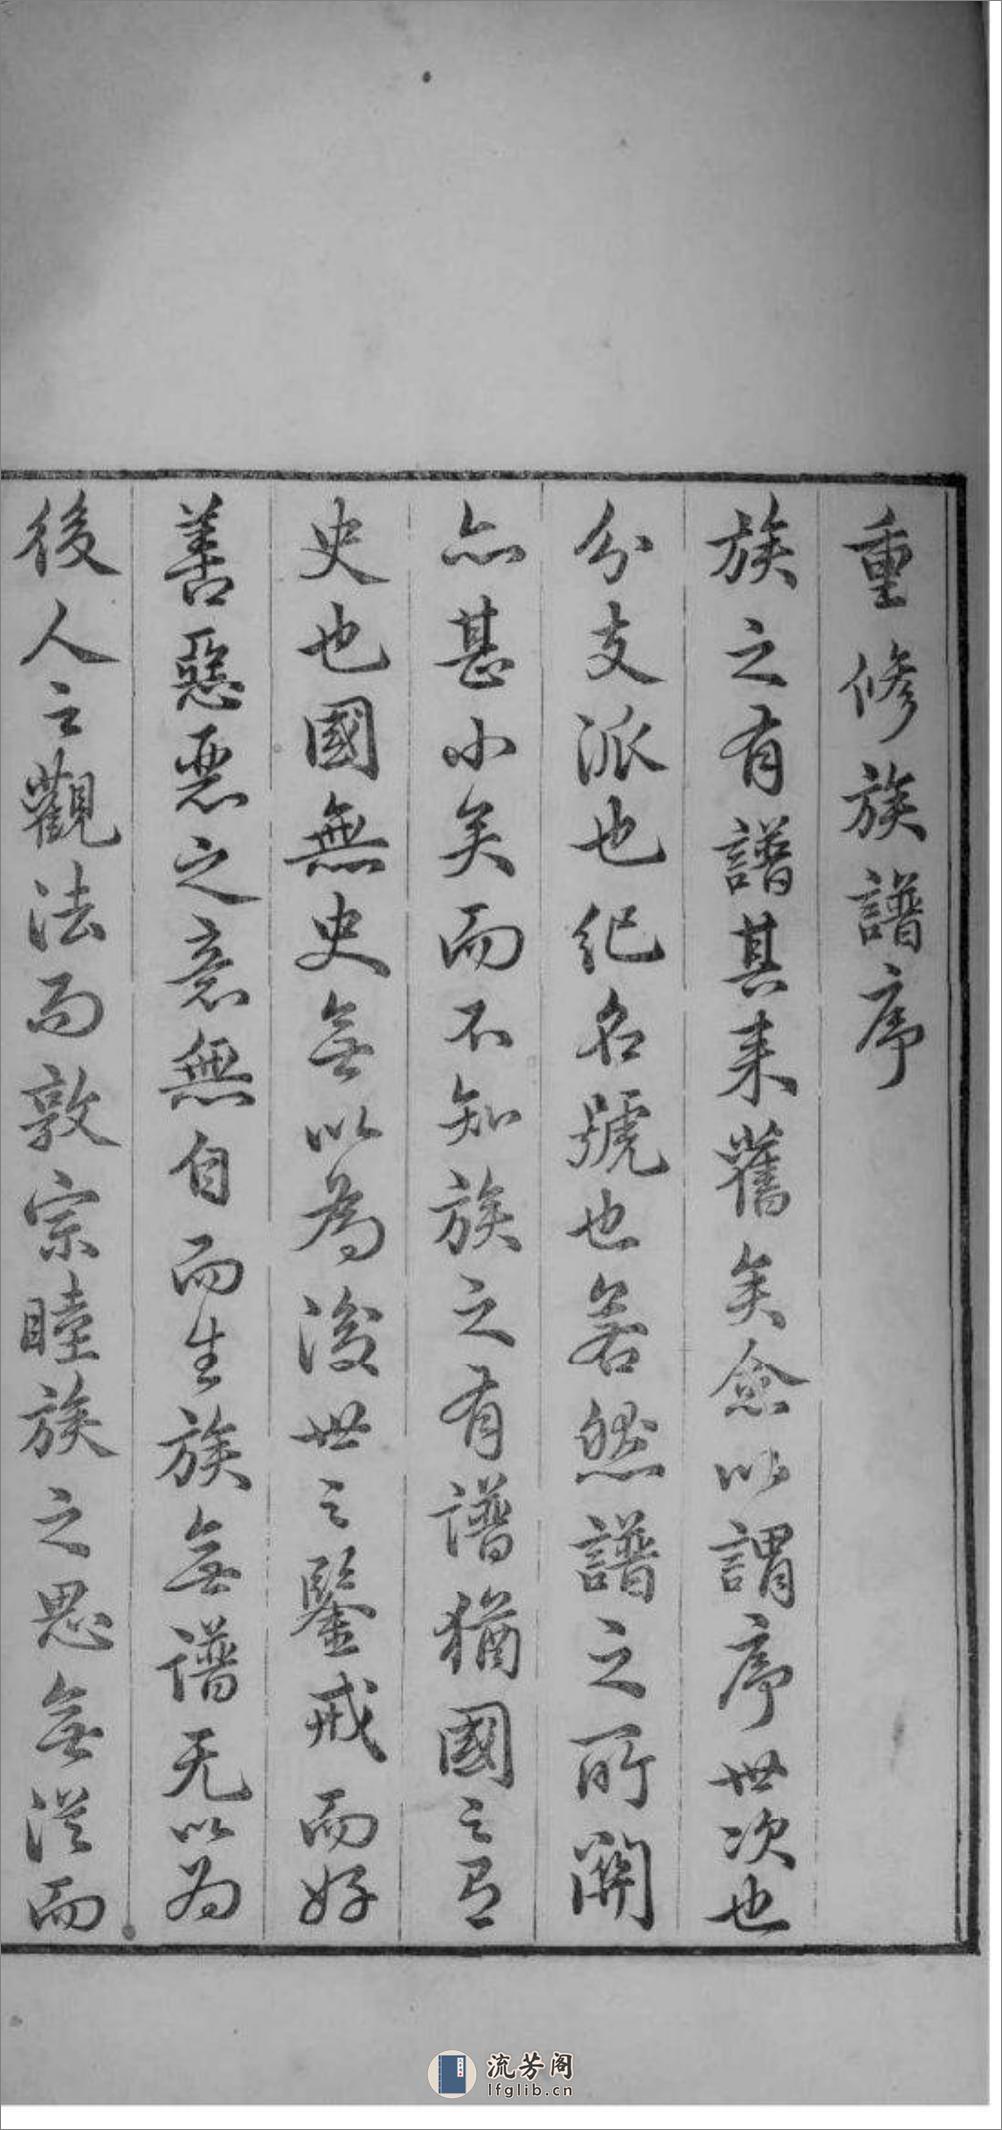 重修族譜序
族之有譜其来舊矣僉以謂序世次也
分支派也纪名號也若然譜之所關
亦甚小矣而不知族之有譜猶國之有
史也國無史無以為後世之鑒戒而好
善惡惡之意無自而生族無譜无以為
後人之觀法而敦宗睦族之思無從而
流芳阁
lfglib.cn